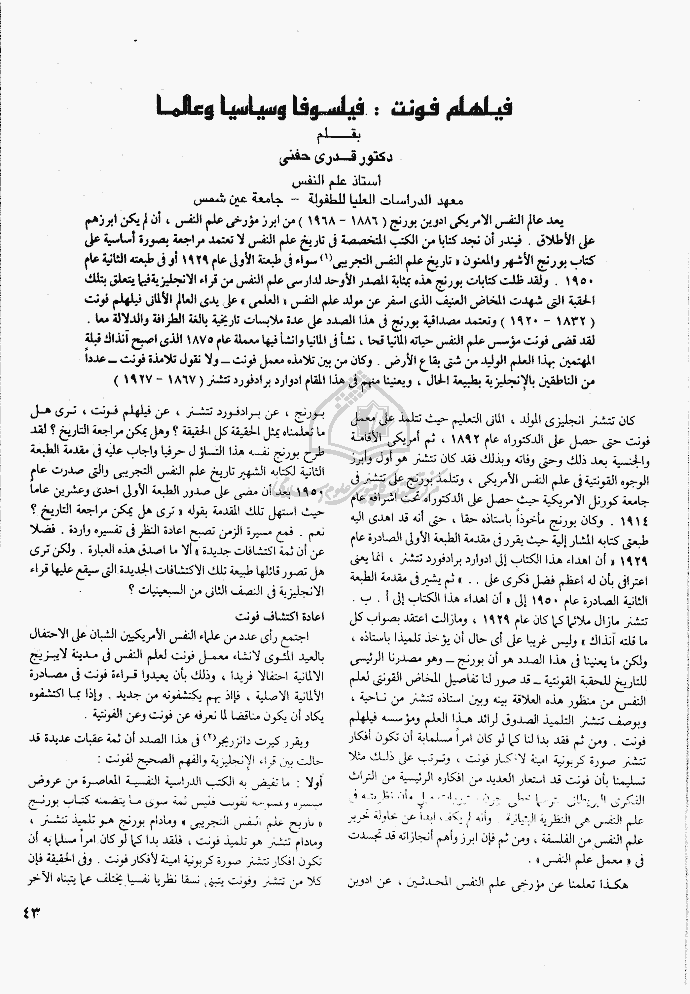 فيلهلم فونت : فيلسوفا وسياسيا وعالما
بقلم
دكتور قدرى حفنى
أستاذ علم النفس
معهد الدراسات العليا للطفولة – جامعة عين شمس
يعد عالم النفس الامريكى ادوين بورنج ( ١٨٨٦ – ١٩٦٨ ) من ابرز مؤرخى علم النفس ، أن لم يكن ابرزهم
على الأطلاق . فيندر أن نجد كتابا من الكتب المتخصصة فى تاريخ علم النفس لا تعتمد مراجعة بصورة أساسية على
كتاب بورنج الأشهر والمعنون « تاريخ علم النفس التجريبى (١) سواء فى طبعتة الأولى عام ١٩٢٩ أو فى طبعته الثانية عام
١٩٥٠ . ولقد ظلت كتابات بورنج هذه بمثابة المصدر الأوحد لدارسى علم النفس من قراء الانجليزية فيما يتعلق بتلك
الحقبة التى شهدت المخاض العنيف الذى اسفر عن مولد علم النفس « العلمى » على يدى العالم الألمانى فيلهلم فونت
( ١٨٣٢ – ١٩٢٠ ) وتعتمد مصداقية بورنج فى هذا الصدد على عدة ملابسات تاريخية بالغة الطرافة والدلالة معا .
لقد قضى فونت مؤسس علم النفس حياته المانيا قحا ، نشأ فى المانيا وانشأ فيها معملة عام ١٨٧٥ الذى اصبح آنذاك قبلة
المهتمين بهذا العلم الوليد من شتى بقاع الأرض . وكان من بين تلامذه معمل فونت ــ ولا نقول تلامذة فونت ــ عدداً
من الناطقين بالإنجليزية بطبيعة الحال ، ويعنينا منهم فى هذا المقام ادوارد برادفورد تتشنر ( ١٨٦٧ – ١٩٢٧ )
كان تتشنر انجليزى المولد ، المانى التعليم حيث تتلمذ على معمل
فونت حتى حصل على الدكتوراه عام ١٨٩٢ ، ثم أمريكى الأقامة
والجنسية بعد ذلك وحتى وفاته وبذلك فقد كان تتشنر هو أول وأبرز
الوجوه الفونتية فى علم النفس الأمريكى ، وتتلمذ بورنج على تتشنر فى
جامعة كورنل الامريكية حيث حصل على الدكتوراه تحت اشرافه عام
١٩١٤ . وكان بورنج مأخوذاً باستاذه حقا ، حتى أنه قد اهدى اليه
طبعتى كتابه المشار إلية حيث يقرر فى مقدمة الطبعة الأولى الصادرة عام
١٩٢٩ « أن اهداء هذا الكتاب إلى ادوارد برادفورد تتشنر ، انما يعنى
اعترافى بأن له اعظم فضل فكرى على . . » ثم يشير فى مقدمة الطبعة
الثانية الصادرة عام ١٩٥٠ إلى « أن اهداء هذا الكتاب إلى أ . ب .
تتشنر مازال ملائما كما كان عام ١٩٢٩ ، ومازالت اعتقد بصواب كل
ما قلته آنذاك » وليس غريبا على أى حال أن يؤخذ تلميذا باستاذه ،
ولكن ما يعنينا فى هذا الصدد هو أن بورنج ــ وهو مصدرنا الرئيسى
للتاريخ للحقبة الفونتية ــ قد صور لنا تفاصيل المخاض الفونتى لعلم
النفس من منظور هذه العلاقة بينه وبين استاذه تتشنر من ناحية ،
وبوصف تتشنر التلميذ الصدوق لرائد هذا العلم ومؤسسه فيلهلم
فونت . ومن ثم فقد بدا لنا كما لو كان امراً مسلمابة أن تكون أفكار
تتشنر صورة كربونية امينة لافكار فونت ، وترتب على ذلك مثلا
تسليمنا بأن فونت قد استعار العديد من افكاره الرئيسية من التراث
الفكرى البريطانى وأن نظريته فى
علم النفس هى النظرية البنيانية . وأنه لم يكف ابداً عن محاولة تحرير
علم النفس من الفلسفة ، ومن ثم فإن ابرز وأهم أنجازاته قد تجسدت
فى « معمل علم النفس » .
هكذا تعلمنا عن مؤرخى علم النفس المحدثين ، عن ادوين
بورنج ، عن برادفورد تتشنر ، عن فيلهلم فونت ، ترى هل
ما تعلمناه يمثل الحقيقة كل الحقيقة ؟ وهل يمكن مراجعة التاريخ ؟ لقد
طرح بورنج نفسه هذا التساؤل حرفيا واجاب عليه فى مقدمة الطبعة
الثانية لكتابه الشهير تاريخ علم النفس التجريبى والتى صدرت عام
١٩٥٠ بعد أن مضى على صدور الطبعة الأولى احدى وعشرين عاماً
حيث استهل تلك المقدمة بقوله « ترى هل يمكن مراجعة التاريخ ؟
نعم . فمع مسيرة الزمن تصبح اعادة النظر فى تفسيره واردة . فضلا
عن أن ثمة اكتشافات جديدة » ألا ما اصدق هذه العبارة . ولكن ترى
هل تصور قائلها طبيعة تلك الاكتشافات الجديدة التى سيقع عليها قراء
الانجليزية فى النصف الثانى من السبعينيات ؟
اعادة اكتشاف فونت
اجتمع رأى عدد من علماء النفس الأمريكيين الشبان على الاحتفال
بالعيد المئوى لانشاء معمل فونت لعلم النفس فى مدينة لايبزيج
الالمانية احتفالا فريدا ، وذلك بأن يعيدوا قراءة فونت فى مصادرة
الألمانية الاصلية ، فإاذ بهم يكتشفونه من جديد . وإذا بما اكتشفوه
يكاد أن يكون مناقضا لما نعرفه عن فونت وعن الفونتية .
ويقرر كيرت دانزيجر(٢) فى هذا الصدد أن ثمة عقبات عديدة قد
حالت بين قراء الإنجليزية والفهم الصحيح لفونت :
أولا : ما تفيض به الكتب الدراسية النفسية المعاصرة من عروض
فونت فليس ثمة سوى ما يتضمنه كتاب بورنج
« تاريخ علم النفس التجريبى » ومادام بورنج هو تلميذ تتشنر ،
ومادام تتشنر هو تلميذ فونت ، فلقد بدا كما لو كان امراً مسلما به أن
تكون افكار تتشنر صورة كربونية امينة لأفكار فونت . وفى الحقيقة فإن
كلا من تتشنر وفونت يتبنى نسقا نظريا نفسيا يختلف عما يتبناه الآخر
٤٣